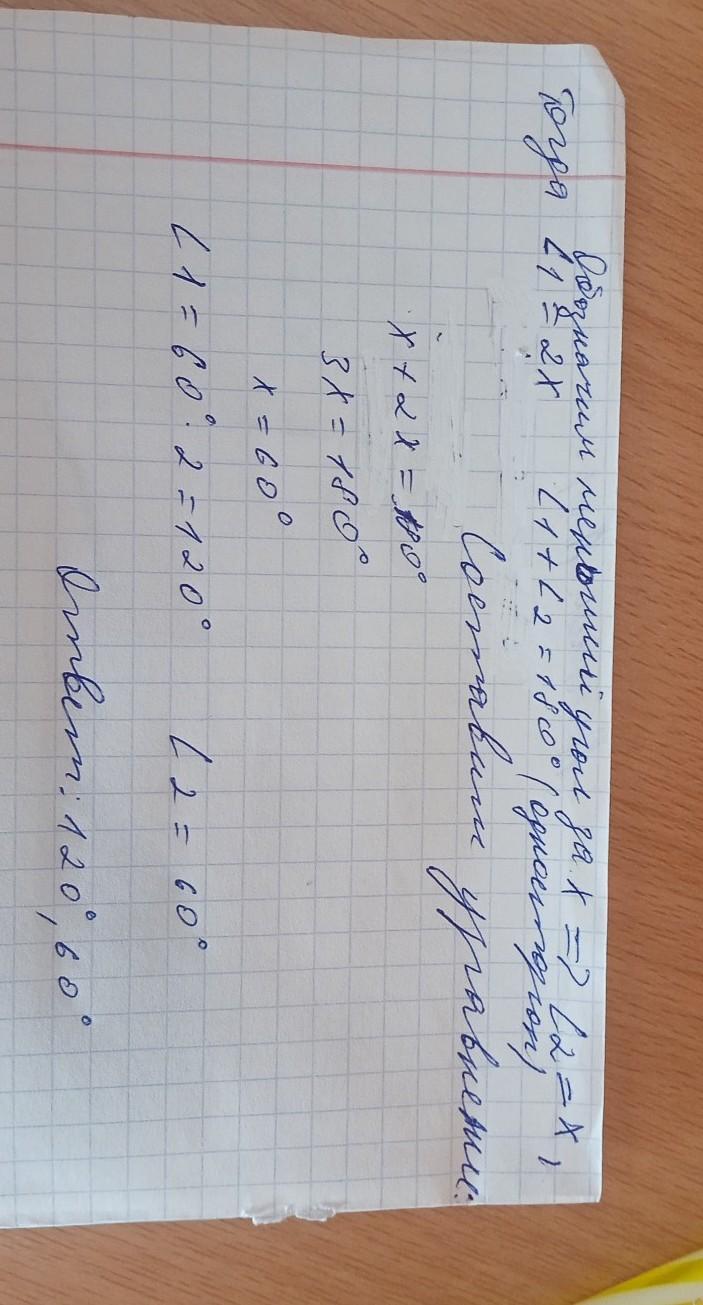 Обозначим меньший угол за x => ∠2 = x,
Тогда ∠1 = 2x ∠1 + ∠2 = 180° (односторон)
Составим уравнение:
x + 2x = 180°
3x = 180°
x = 60°
∠1 = 60° · 2 = 120° ∠2 = 60°
Ответ: 120°, 60°